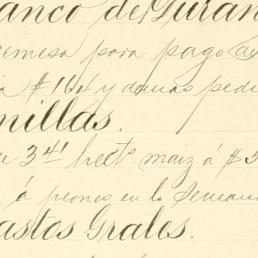 Banco de Duran
remesa para pago
$ 164 y demas pedi
millas.
341 hects. maiz á $5
á peones en la Semana
astos Grales.